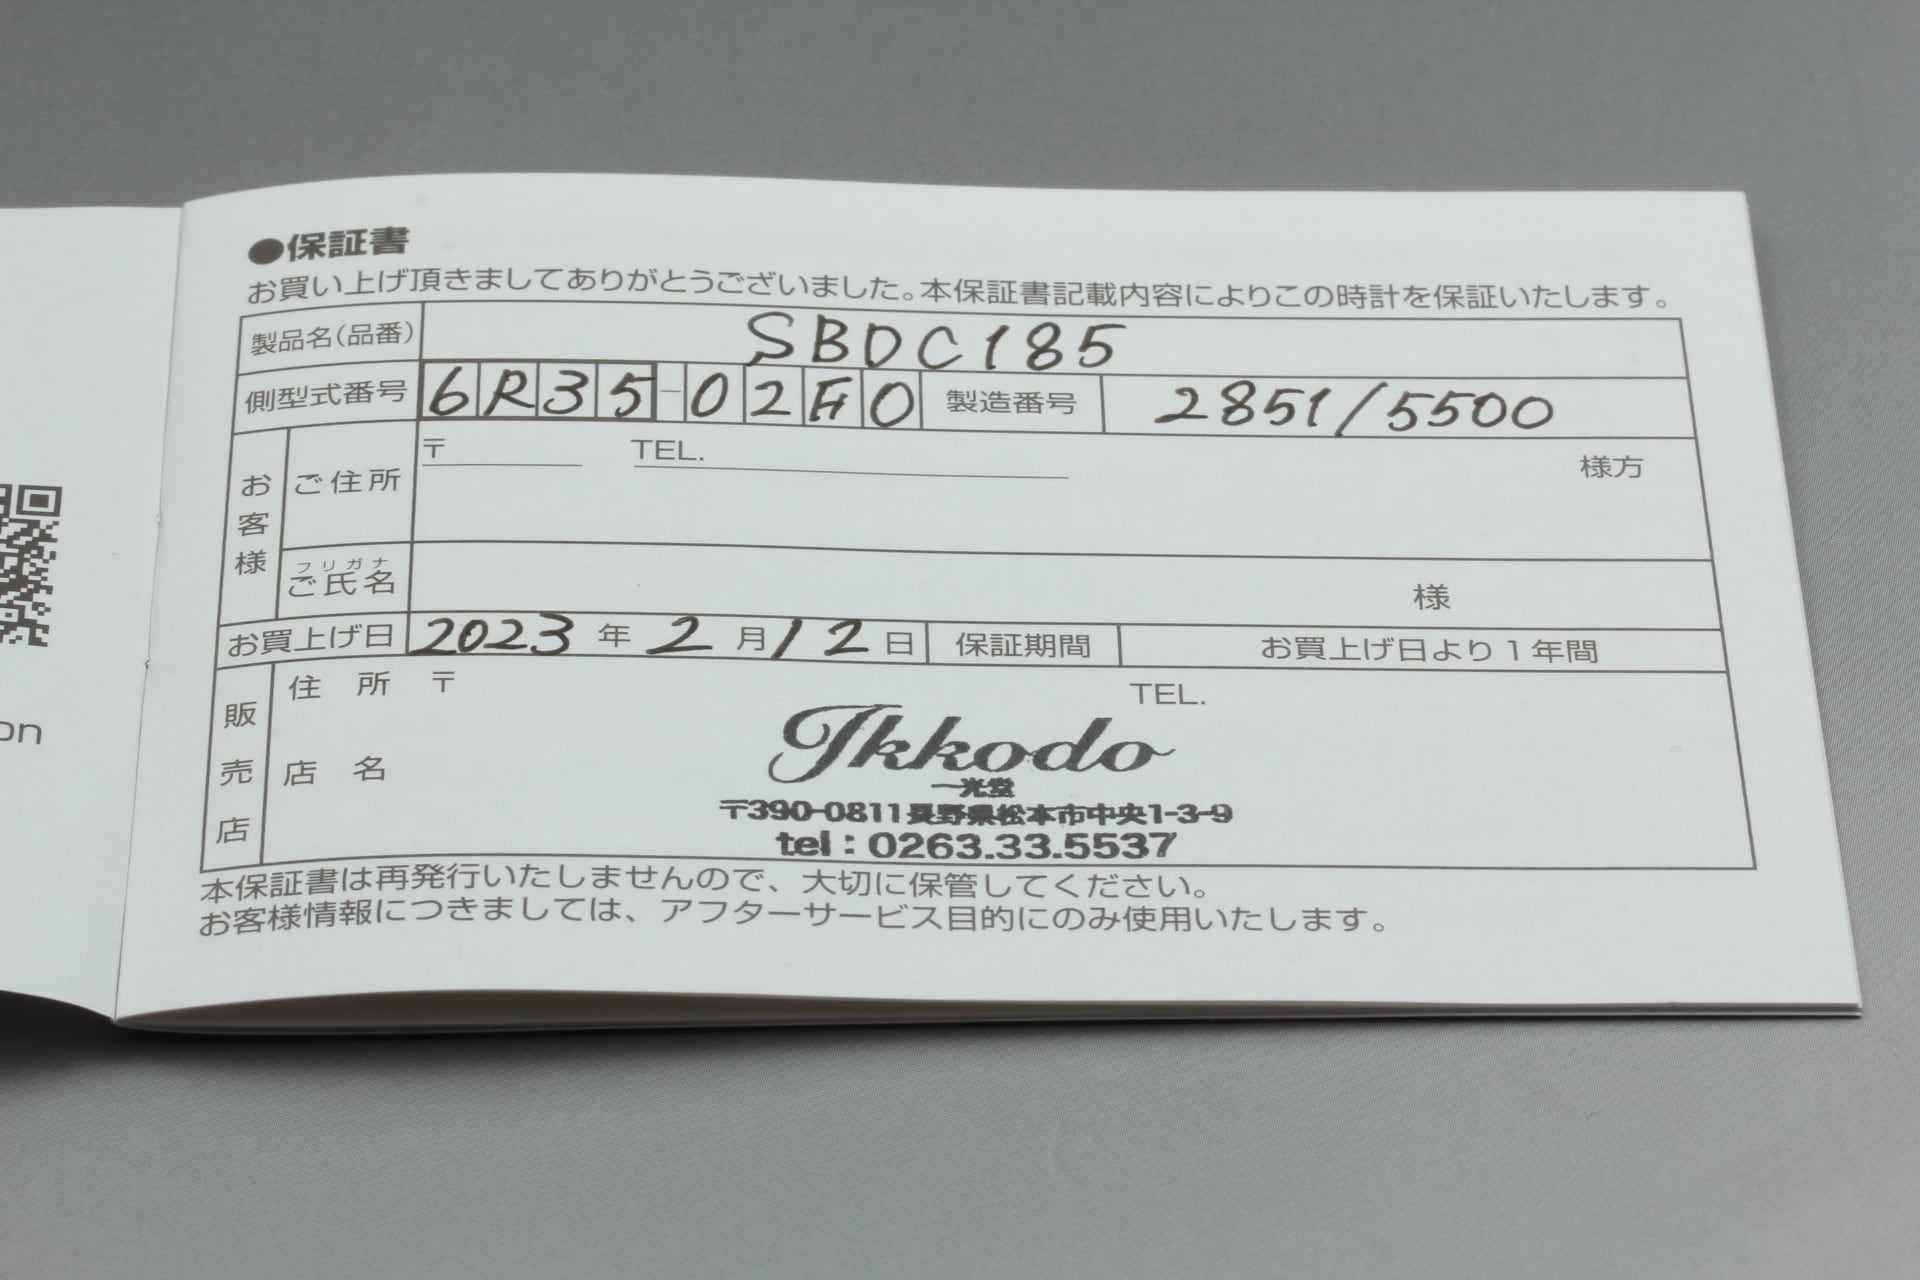 ●保証書
お買い上げ頂きましてありがとうございました。本保証書記載内容によりこの時計を保証いたします。
製品名(品番) SBDC185
側型式番号 6R35-02F0 製造番号 2851/5500
お客様
ご住所 〒 TEL. 様方
フリガナ
ご氏名 様
お買上げ日 2023年2月12日 保証期間 お買上げ日より1年間
販売店
住所 〒 TEL.
店名 Ikkodo
一光堂
〒390-0811長野県松本市中央1-3-9
tel:0263.33.5537
本保証書は再発行いたしませんので、大切に保管してください。
お客様情報につきましては、アフターサービス目的にのみ使用いたします。
on